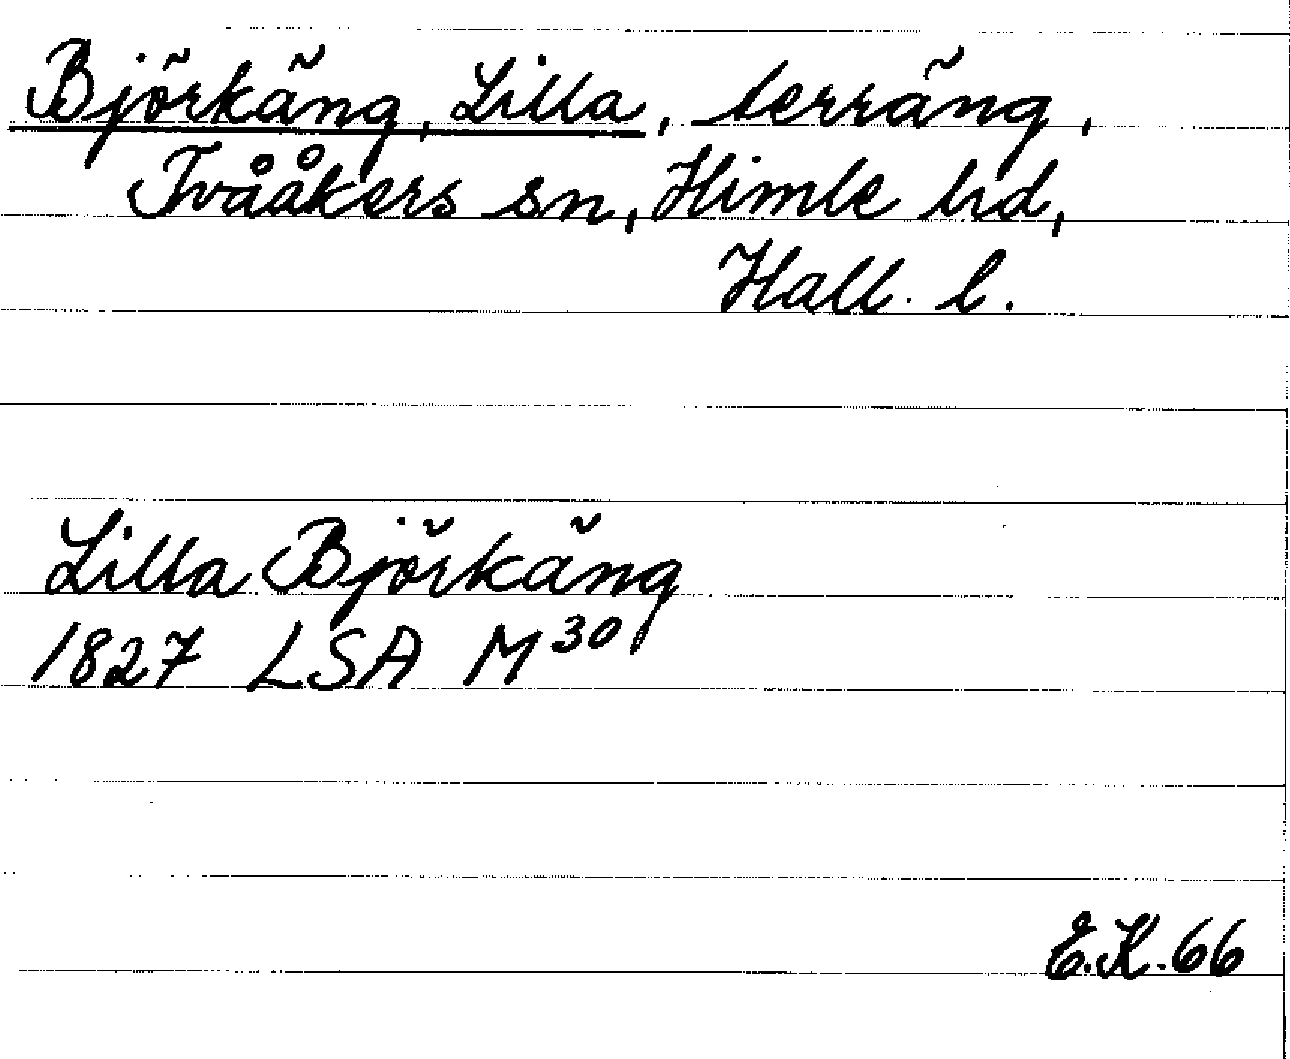 Björkäng, Lilla, terräng,
Tvååkers sn, Himle hd,
Hall. l.
Lilla Björkäng
1827 LSA M30
E.K. 66